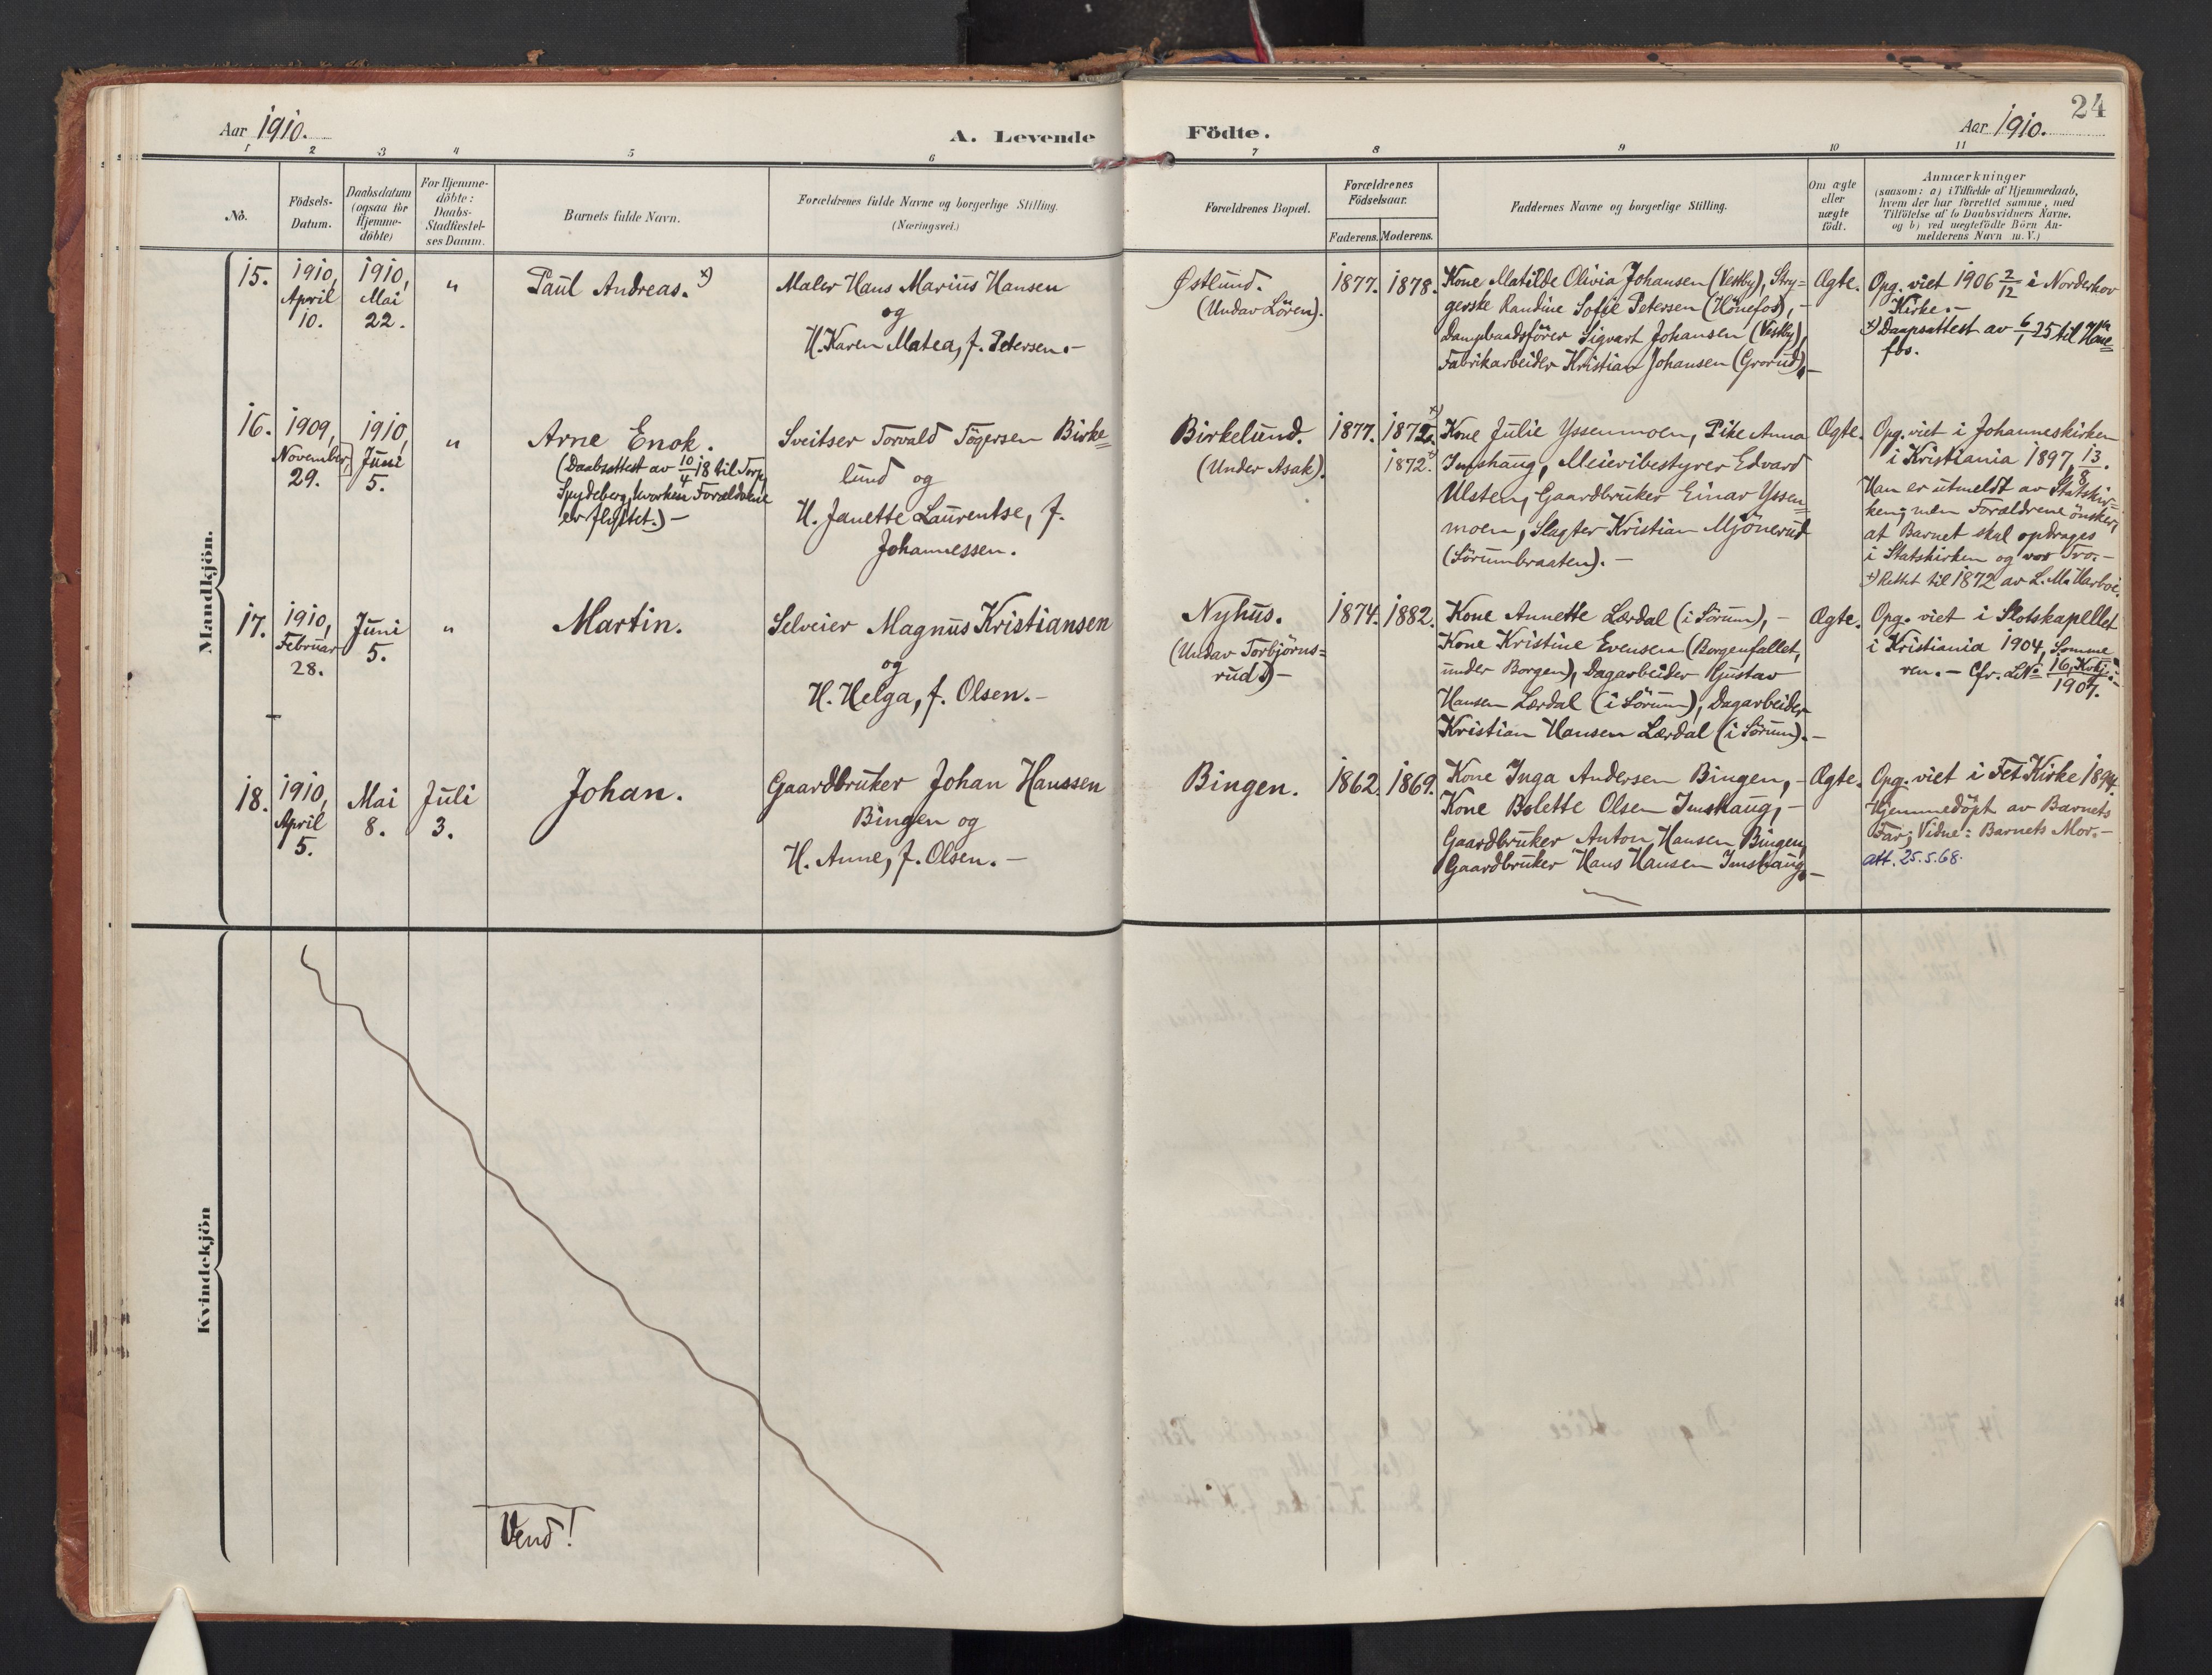 Aar 1910.
A. Levende
Födte.
24
Aar 1910.
1 2 3 4 5 6 7 8 9 10 11
No.
Födsels-
Datum.
Daabsdatum
(ogsaa for
Hjemme-
döbte)
For Hjemme-
döbte:
Daabs-
Stadfæstel-
ses Datum.
Barnets fulde Navn.
Forældrenes fulde Navne og borgerlige Stilling.
(Næringsvei.)
Forældrenes Bopæl.
Forældrenes
Födselsaar.
Faderens.
Moderens.
Faddernes Navne og borgerlige Stilling.
Om ægte
eller
uægte
födt.
Anmærkninger
(saasom: a) i Tilfælde af Hjemmedaab,
hvem der har forrettet samme, med
Tilföielse af to Daabsvidners Navne.
og b) ved uægtefödte Börn An-
melderens Navn m.V.)
Mandkjön.
15.
1910,
April
10.
1910,
Mai
22.
"
Paul Andreas. x)
Maler Hans Marius Hansen
og
H. Karen Matea, f. Petersen.-
Østlund.
(Undav Lören).
1877.
1878.
Kone Matilde Olivia Johansen (Vestby), Stry-
gerske Randine Sofie Petersen (Hönefos), -
Dampbaadsförer Sigvart Johansen (Vestby),
Fabrikarbeider Kristian Johansen (Grorud).-
Ægte.
Opg. viet 1906 2/12 i Norderhov
Kirke.-
x) Daapsattest av 6/1 25 til Höne=
fos.
16.
1909,
November
29.
1910,
Juni
5.
"
Arne Enok.
(Daabsattest av 10/4 18 til Torp,
Spydeberg, hvorhen Forældrene
er flyttet.)-
Sveitser Torvald Tögersen Birke=
lund og
H. Janette Laurentse, f.
Johannessen.
Birkelund.
(Under Asak).
1877.
x)
1872.
Kone Julie Yssenmoen, Pike Anna
Imshaug, Meieribestyrer Edvard
Ulsten, Gaardbruker Einar Yssen=
moen, Slagter Kristian Mjönerud
(Sörumbraaten).-
Ægte.
Opg. viet i Johanneskirken
i Kristiania 1897, 13/8.
Han er utmeldt av Statskir=
ken; men Forældrene önsker,
at Barnet skal opdrages
i Statskirken og vor Tro.-
x) Rettet til 1872 av L. M. Harboe.
17.
1910,
Februar
28.
Juni
5.
"
Martin.
Selveier Magnus Kristiansen
og
H. Helga, f. Olsen.-
Nyhus.
(Undav Torbjörns=
rud)-
1874.
1882.
Kone Annette Lærdal (i Sörum), -
Kone Kristine Evensen (Borgenfallet,
under Borgen), Dagarbeider Gustav
Hansen Lærdal (i Sörum), Dagarbeider
Kristian Hansen Lærdal (i Sörum).-
Ægte.
Opg. viet i Slotskapellet
i Kristiania 1904, Somme
ren. - Cfr. LNo 16, Kvkj.
1907.
18.
1910,
April
5.
Mai
8.
Juli
3.
Johan.
Gaardbruker Johan Hanssen
Bingen og
H. Anne, f. Olsen.-
Bingen.
1862.
1869.
Kone Inga Andersen Bingen, -
Kone Bolette Olsen Imshaug, -
Gaardbruker Anton Hansen Bingen,
Gaardbruker Hans Hansen Imshaug.-
Ægte.
Opg. viet i Fet Kirke 1894.
Hjemmedöpt av Barnets
Far; Vidne: Barnets Mor.-
att. 25.5.68.
Kvindekjön
Vend!